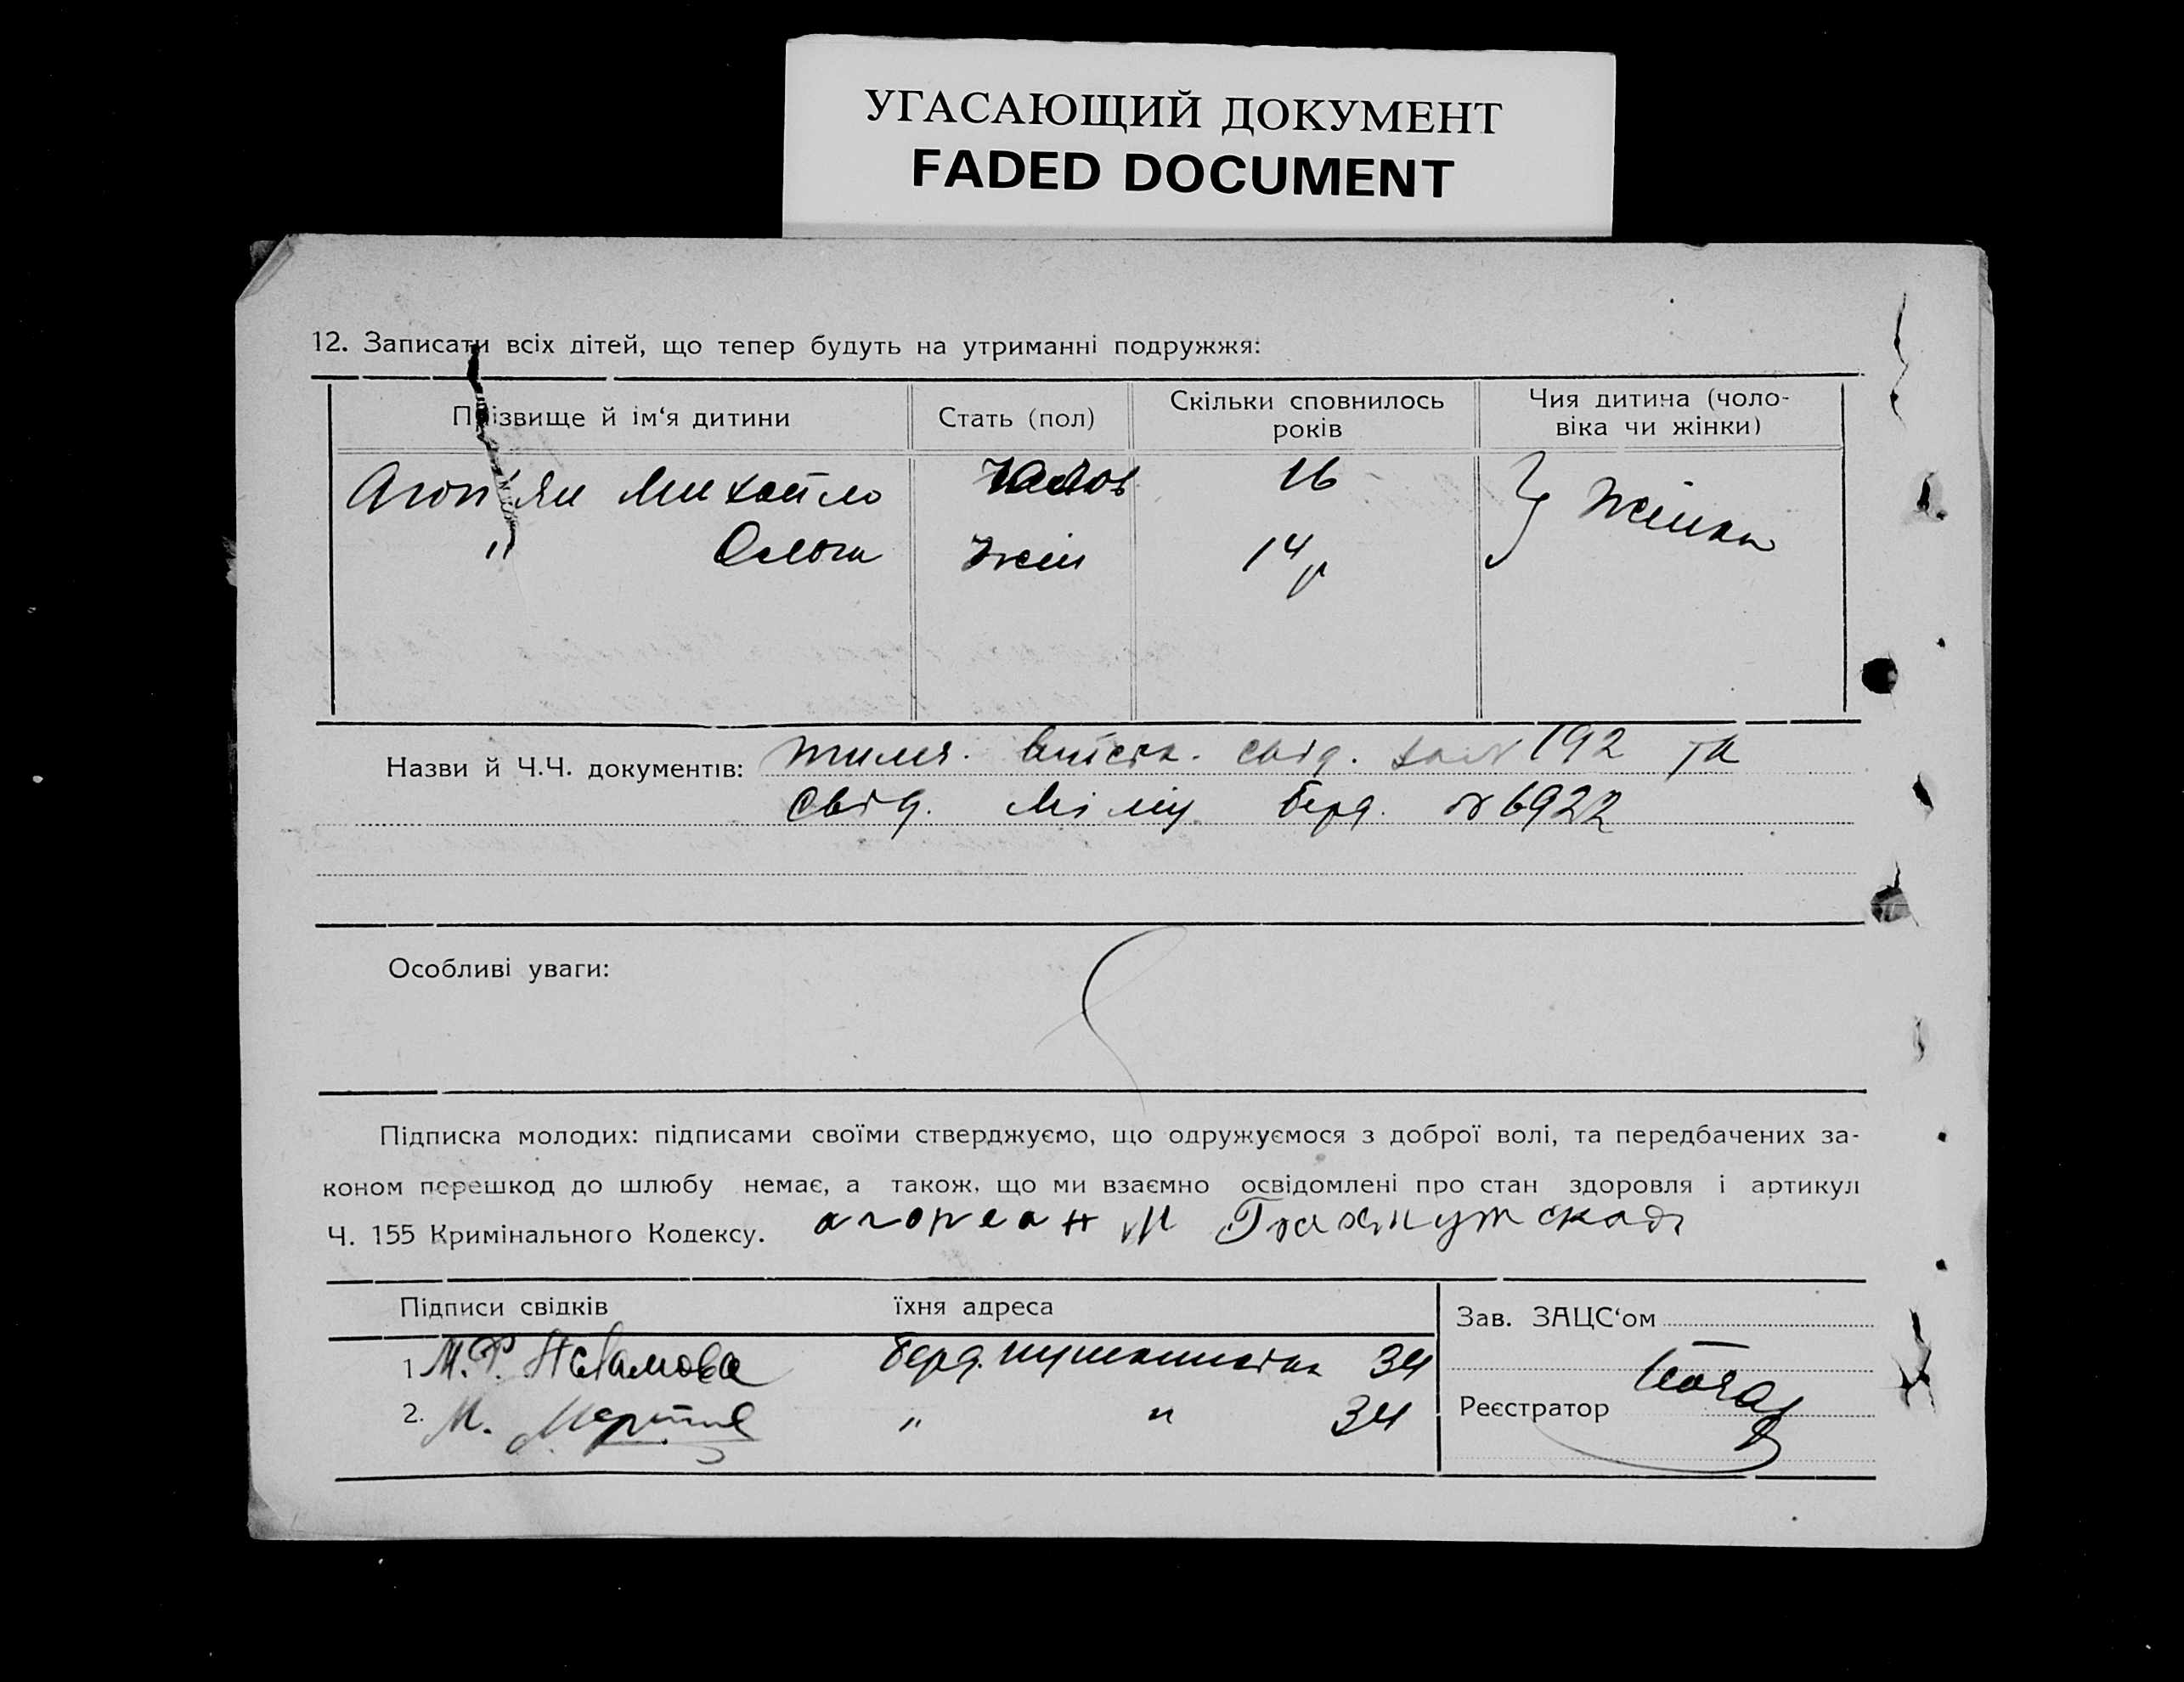 УГАСАЮЩИЙ ДОКУМЕНТ
FADED DOCUMENT
12. Записати всіх дітей, що тепер будуть на утриманні подружжя:
Прізвище й ім‘я дитини Стать (пол) Скільки сповнилось років Чия дитина (чоловіка чи жінки)
Агоп‘ян Михайло 16 Жінки
" жін 14 р
Назви й Ч.Ч. документів: тимч. військ. свід. 192 та
свід. Міліц. Берд. № 6922
Особливі уваги:
Підписка молодих: підписами своїми стверджуємо, що одружуємося з доброї волі, та передбачених за-
коном перешкод до шлюбу немає, а також, що ми взаємно освідомлені про стан здоровля і артикул
Ч. 155 Кримінального Кодексу. агопеан М
Підписи свідків їхня адреса Зав. ЗАЦС‘ом
1 М. Берд. 34
2. М. " " 34 Реєстратор